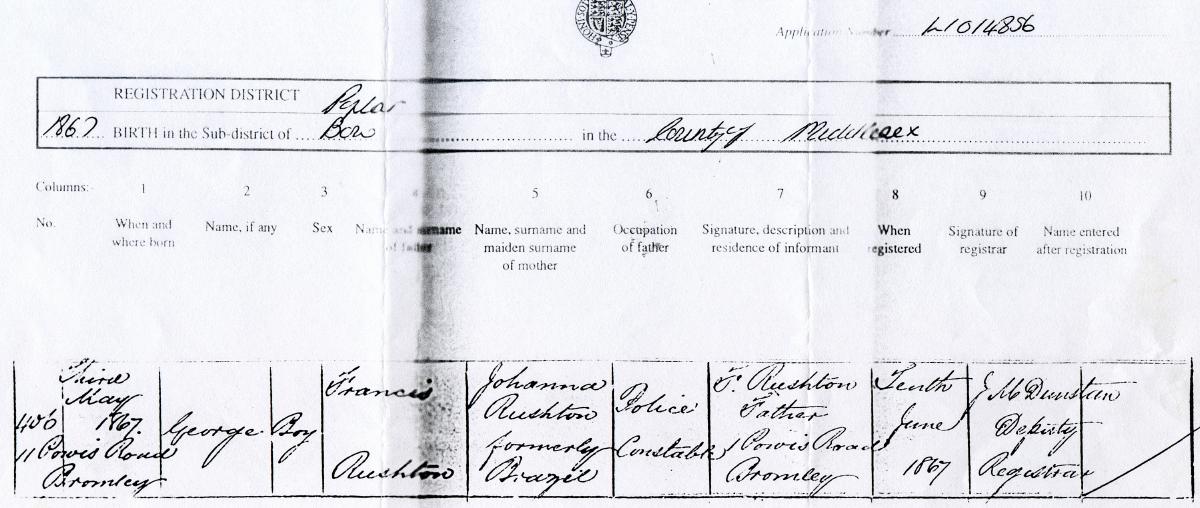 Application Number L1014856
REGISTRATION DISTRICT Poplar
1867 BIRTH in the Sub-district of Bow in the County of Middlesex
Columns:- 1 2 3 4 5 6 7 8 9 10
No. When and where born Name, if any Sex Name and surname of father Name, surname and maiden surname of mother Occupation of father Signature, description and residence of informant When registered Signature of registrar Name entered after registration
Third Francis Johanna F. Rushton Tenth
May Rushton Police Father June Deputy
1867. George Boy formerly Constable 1 Powis Road 1867 Registrar
11 Powis Road Rushton Brazil Bromley
Bromley